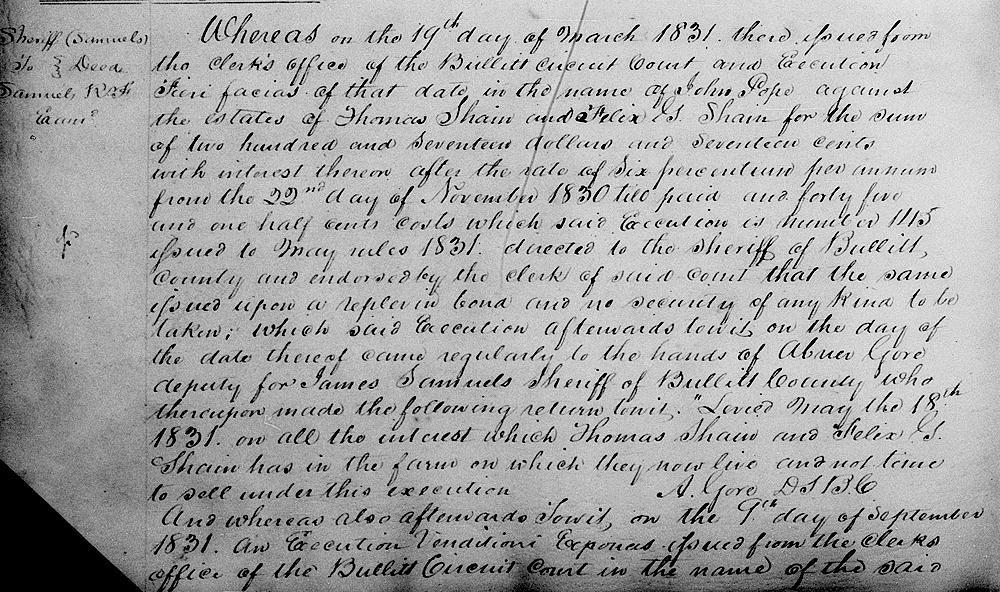 Sheriff (Samuels)
To } Deed
Samuels R & F
Exam^d
Whereas on the 19th day of March 1831. there issued from
the Clerk's office of the Bullitt Circuit Court and Execution
Fieri facias of that date in the name of John Pope against
the estates of Thomas Shain and Felix G. Shain for the sum
of two hundred and seventeen dollars and seventeen cents
with interest thereon after the rate of six percentum per annum
from the 22nd day of November 1830 till paid and forty five
and one half cents costs which said Execution is number 1145
issued to May rules 1831. directed to the Sheriff of Bullitt,
County and endorsed by the clerk of said court that the same
issued upon a replevin bond and no security of any kind to be
taken; which said Execution afterwards towit, on the day of
the date thereof came regularly to the hands of Abner Gore
deputy for James Samuels Sheriff of Bullitt County who
thereupon made the following return towit. "Levied May the 18th
1831. on all the interest which Thomas Shain and Felix G.
Shain has in the farm on which they now live and not time
to sell under this execution A. Gore D S B. C
And whereas also afterwards Towit, on the 9th day of September
1831. An Execution Venditioni Exponas issued from the Clerks
office of the Bullitt Circuit Court in the name of the said